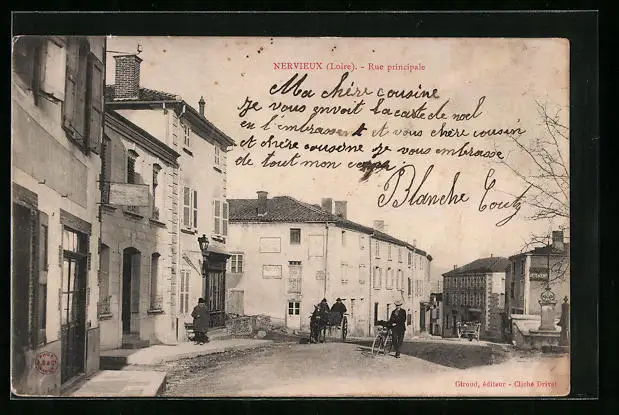 NERVIEUX (Loire). - Rue principale
Ma chère cousine
Je vous envoit la carte de noel
en l'embrassent et vous chère cousin
et chère couserne Je vous embrasse
de tout mon
Blanche
Giroud, éditeur - Cliché Drivet